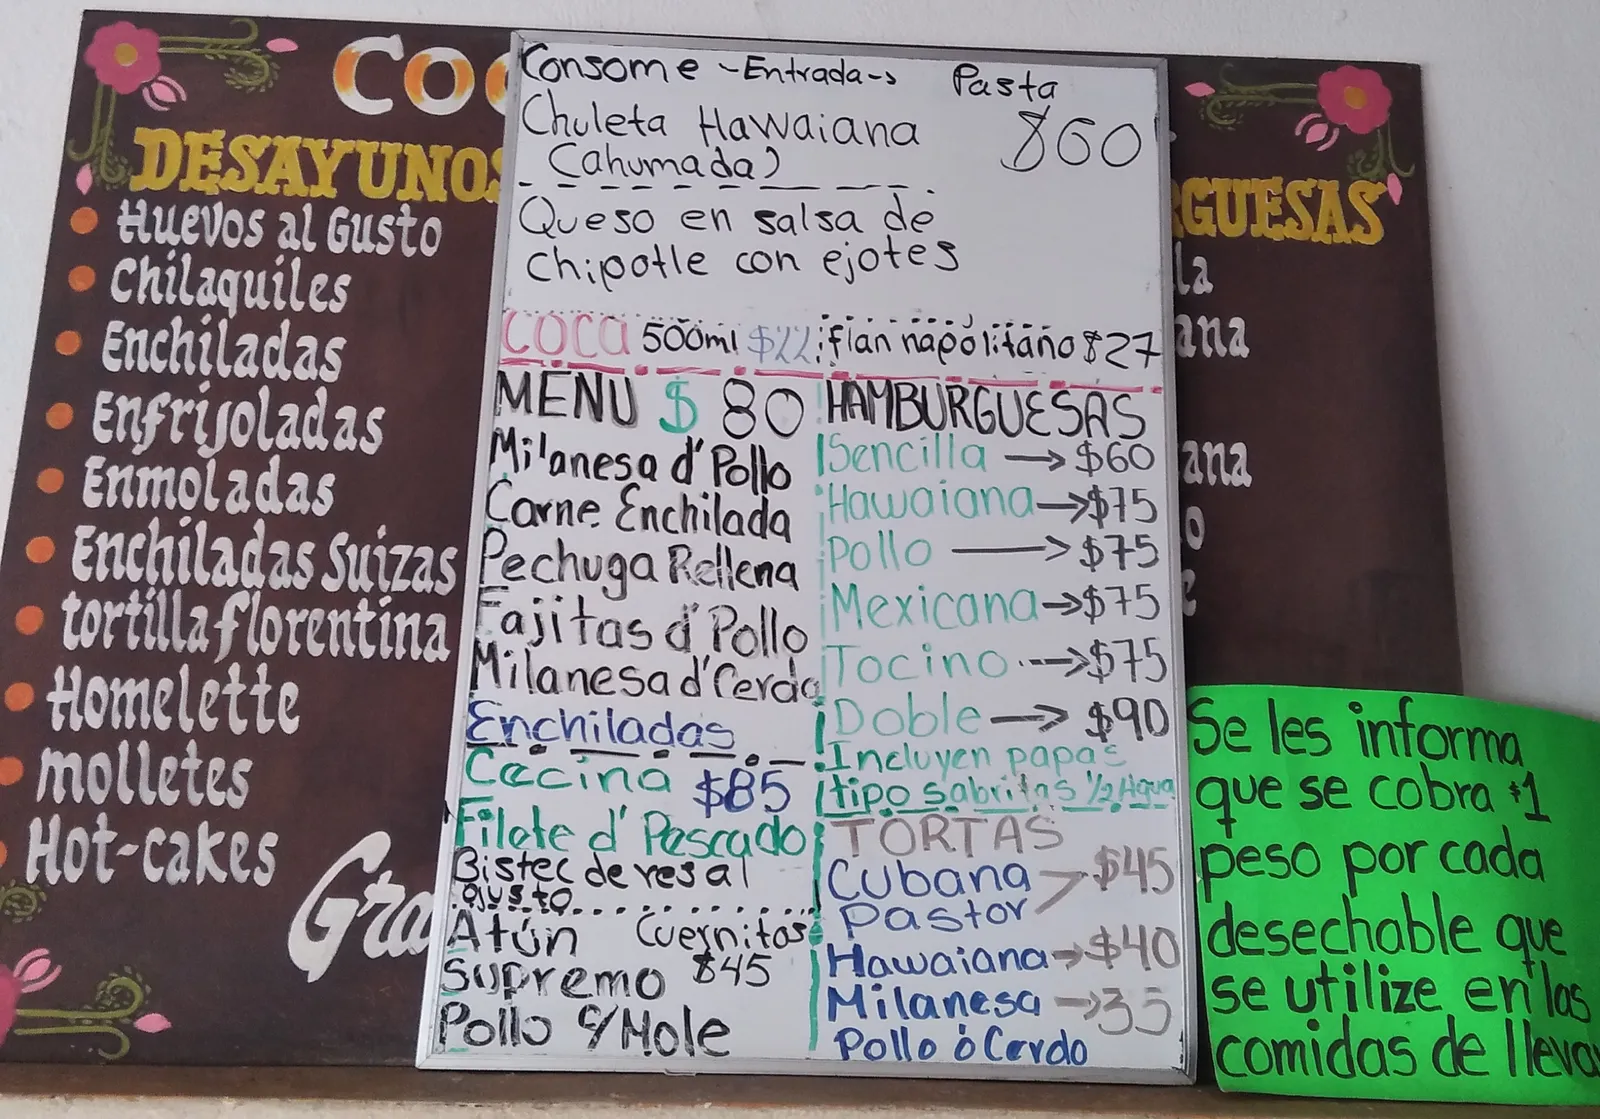 DESAYUNOS
Huevos al Gusto
Chilaquiles
Enchiladas
Enfrijoladas
Enmoladas
Enchiladas Suizas
tortilla florentina
Homelette
molletes
Hot-cakes
Consome -Entrada-> Pasta
Chuleta Hawaiana $60
(ahumada)
Queso en salsa de
chipotle con ejotes
COCA 500ml $22 flan napolitano $27
MENU $ 80
Milanesa d' Pollo
Carne Enchilada
Pechuga Rellena
Fajitas d' Pollo
Milanesa d' Cerdo
Enchiladas
Cecina $85
Filete d' Pescado
Bistec de res al
gusto
Atún Cuernitos
Supremo $45
Pollo c/Mole
HAMBURGUESAS
Sencilla -> $60
Hawaiana -> $75
Pollo -> $75
Mexicana -> $75
Tocino -> $75
Doble -> $90
Incluyen papas
tipo sabritas 1/2 Agua
TORTAS
Cubana $45
Pastor
Hawaiana -> $40
Milanesa -> 35
Pollo ó Cerdo
Se les informa
que se cobra $1
peso por cada
desechable que
se utilize en las
comidas de lleva